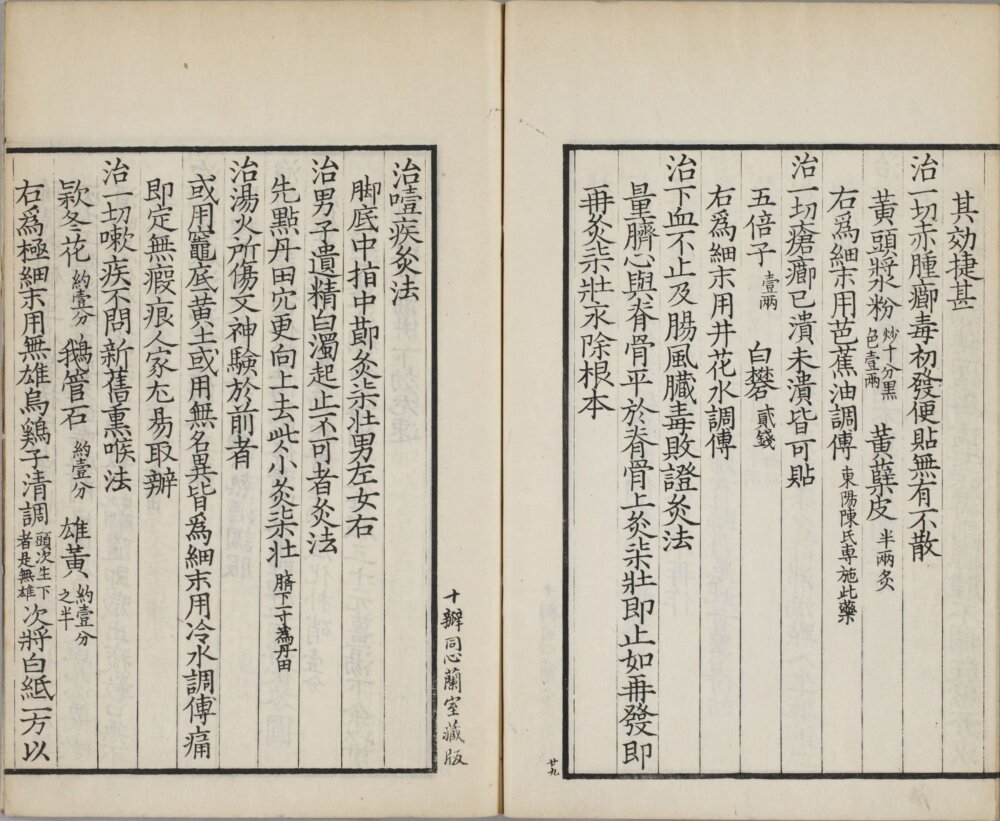 其効捷甚
治一切赤腫癤毒初發便貼無有不散
黃頭漿水粉炒十分黑色壹兩 黃蘗皮半兩炙
右爲細末用芭蕉油調傅東陽陳氏専施此藥
治一切瘡癤已潰未潰皆可貼
五倍子壹兩 白礬貳錢
右爲細末用井花水調傅
治下血不止及腸風臟毒敗證灸法
量臍心與脊骨平於脊骨上灸柒壯即止如再發即
再灸柒壯永除根本
廿九
治噎疾灸法
脚底中指中節灸柒壯男左女右
治男子遺精白濁起止不可者灸法
先點丹田穴更向上去些小灸柒壯臍下一寸爲丹田
治湯火所傷又神驗於前者
或用竈底黄土或用無名異皆爲細末用冷水調傅痛
即定無瘢痕人家尤易取辦
治一切嗽疾不問新舊熏喉法
欵冬花約壹分 鵝管石約壹分 雄黃約壹分之半
右爲極細末用無雄烏鷄子清調頭次生下者是無雄次將白紙一方以
十瓣同心蘭室藏版